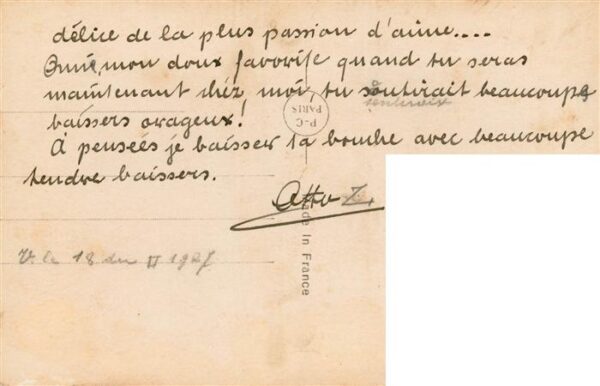 délice de la plus passion d'aime....
Ami, mon doux favorise quand tu seras
maintenant chéz moi, tu soutirait beaucoupe
baisers orageux!
A pensées je baisser ta bouche avec beaucoupe
tendre baisers.
Otto Z.
V. le 18 du II 1927
P-C
PARIS
Made in France